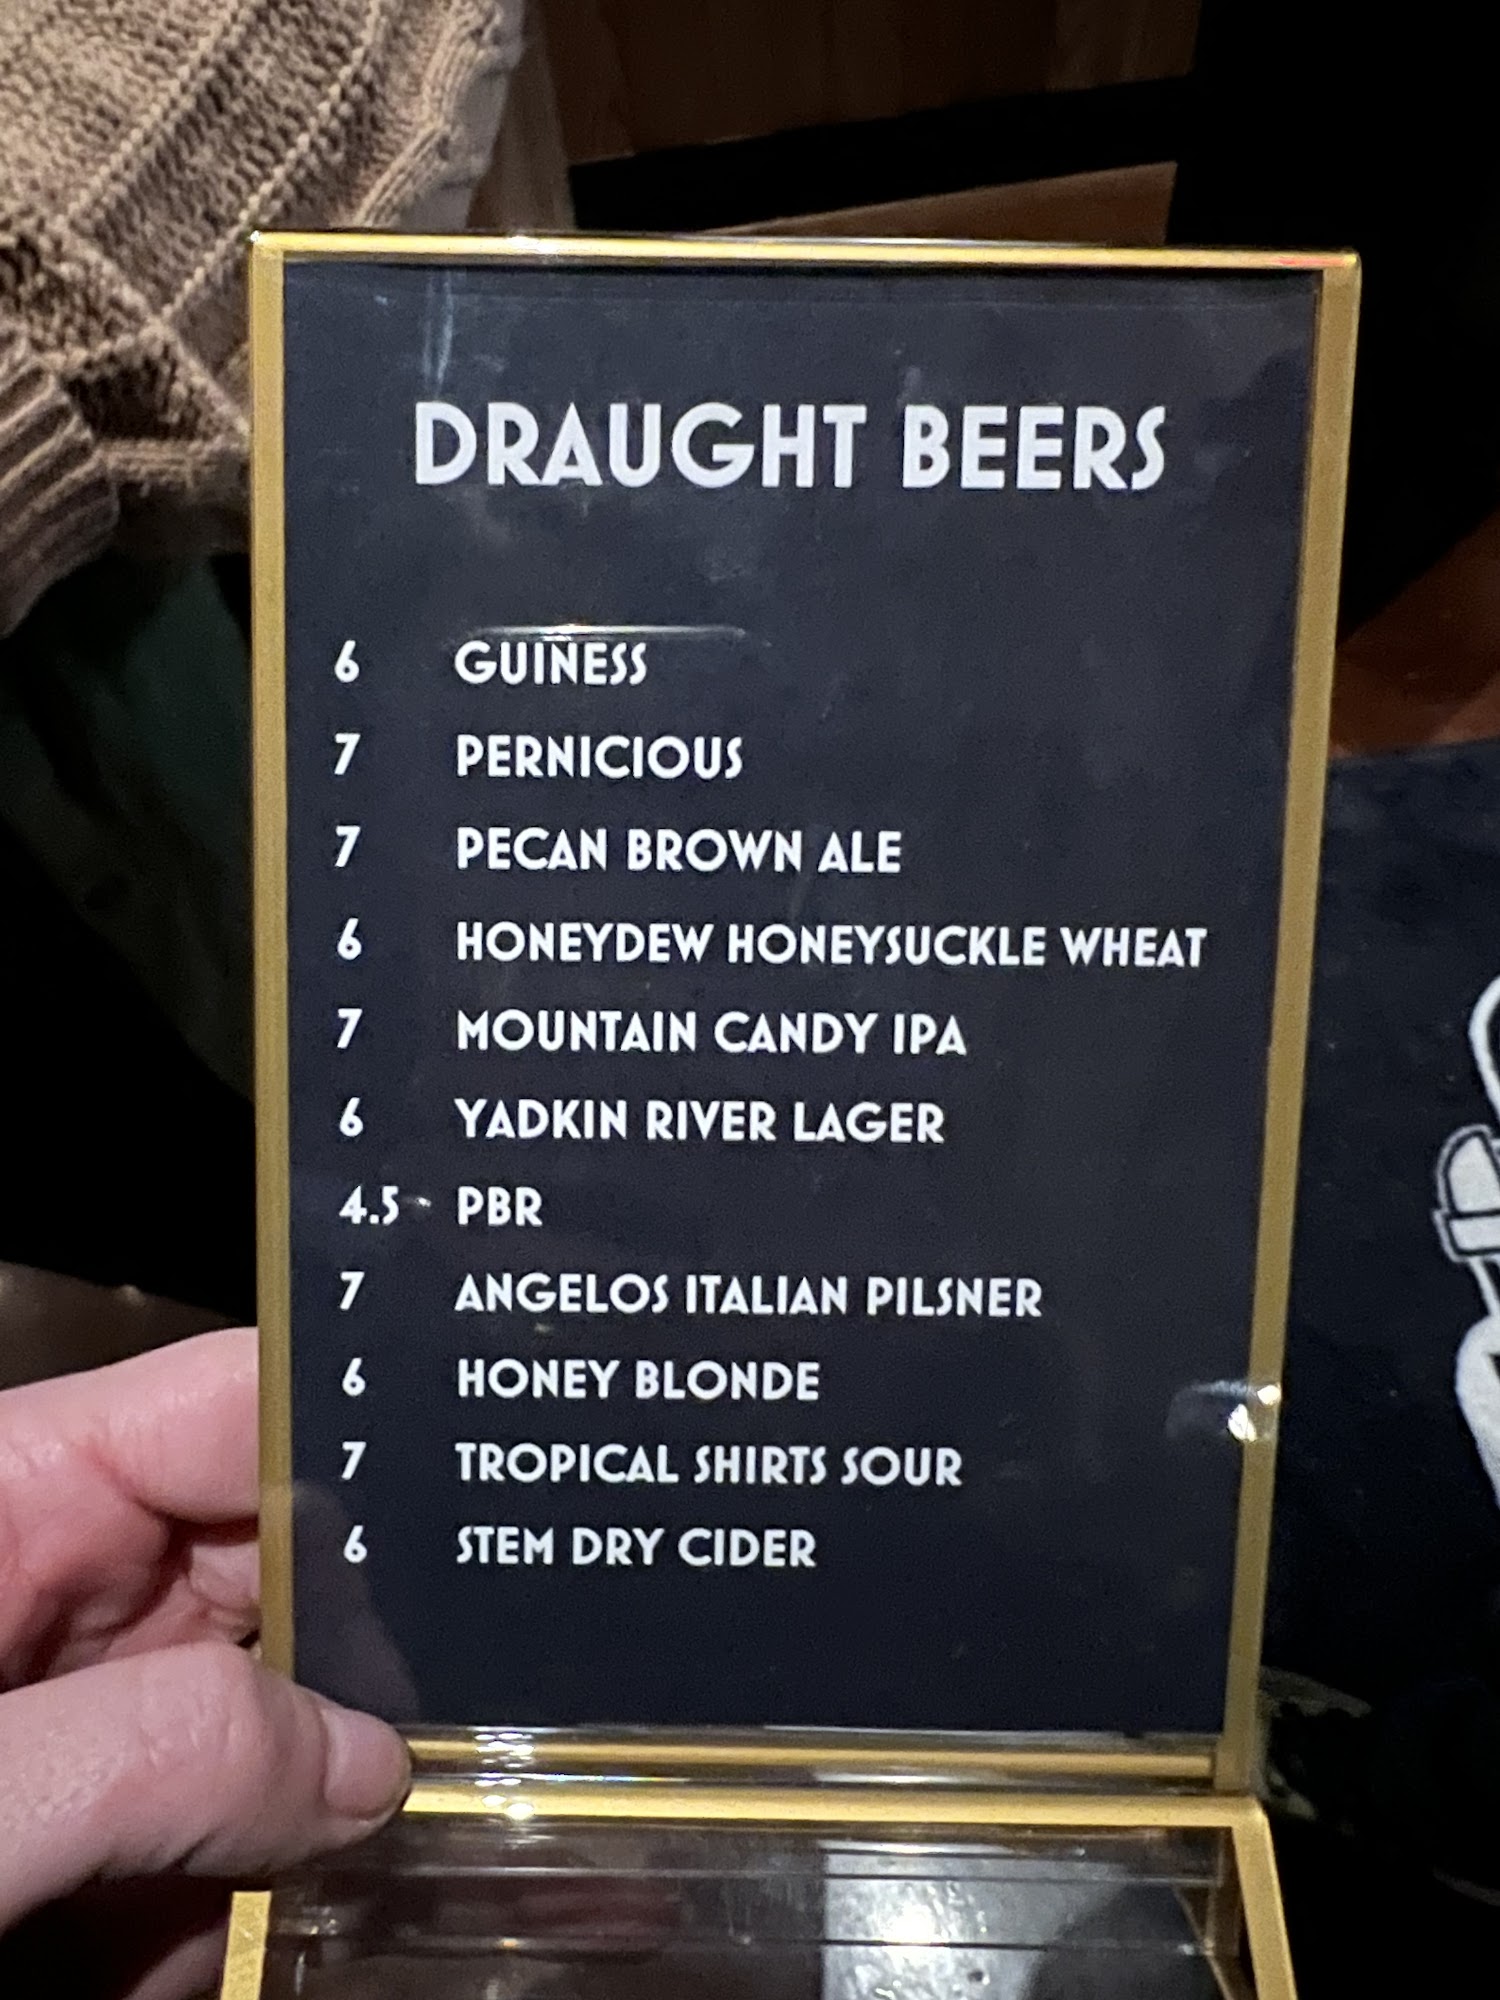 DRAUGHT BEERS
6 GUINESS
7 PERNICIOUS
7 PECAN BROWN ALE
6 HONEYDEW HONEYSUCKLE WHEAT
7 MOUNTAIN CANDY IPA
6 YADKIN RIVER LAGER
4.5 PBR
7 ANGELOS ITALIAN PILSNER
6 HONEY BLONDE
7 TROPICAL SHIRTS SOUR
6 STEM DRY CIDER